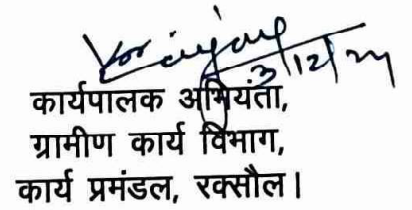 3/12/24
कार्यपालक अभियंता,
ग्रामीण कार्य विभाग,
कार्य प्रमंडल, रक्सौल।